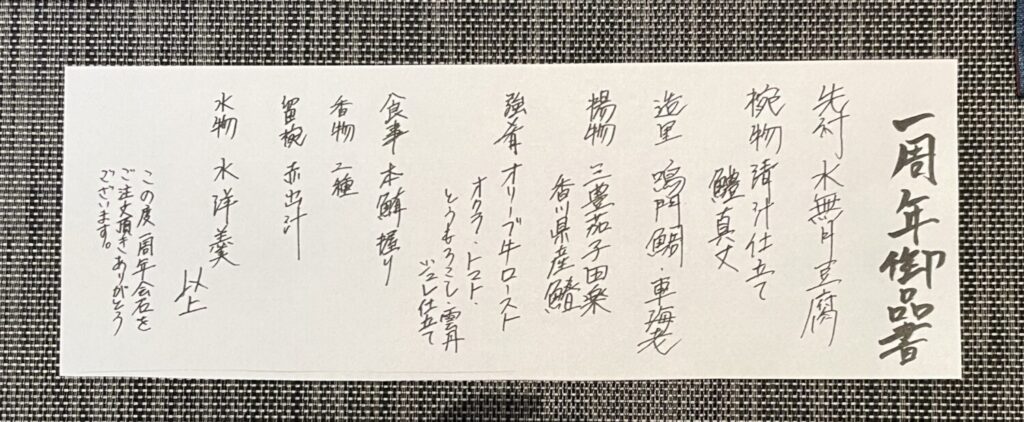 一周年御品書
先附 水無月豆腐
椀物 清汁仕立て
鱧真丈
造里 鳴門鯛・車海老
揚物 三豊茄子田楽
香川県産鱧
強肴 オリーブ牛ロースト
オクラ・トマト・
とうもろこし・雲丹
ジュレ仕立て
食事 本鮪握り
香物 二種
留椀 赤出汁
水物 水洋羹
以上
この度一周年会席を
ご注文頂き、ありがとう
ございます。